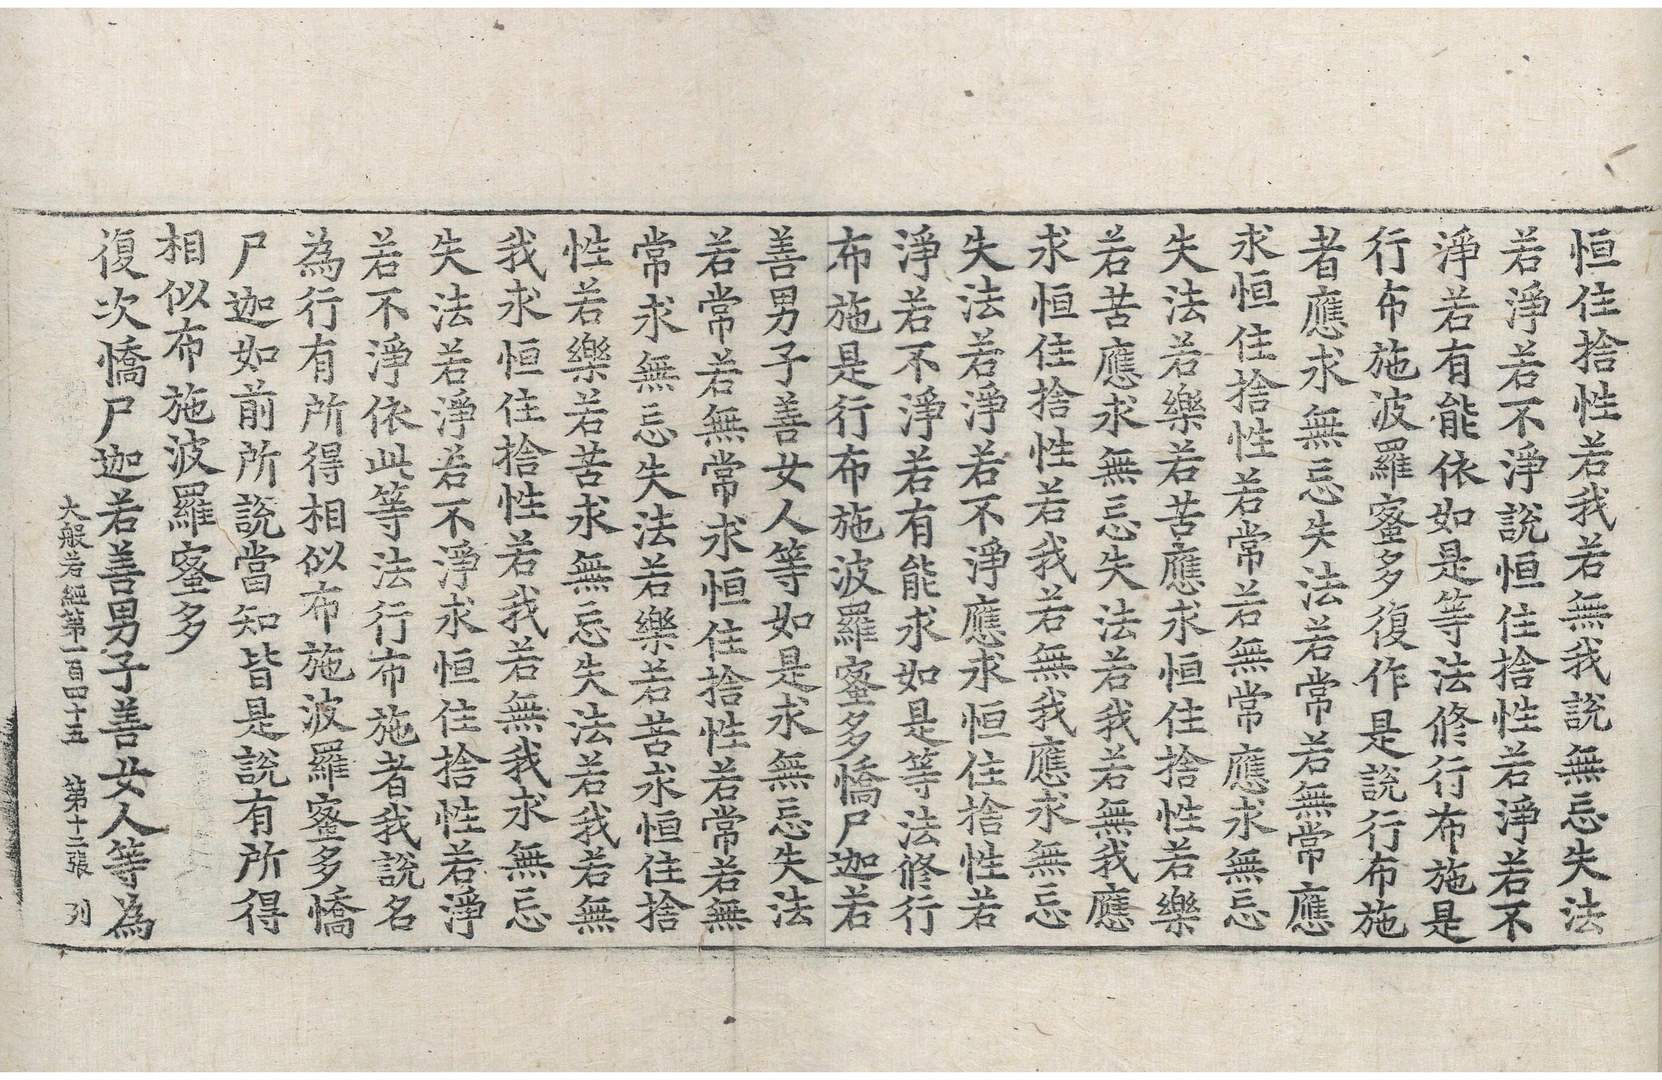 恒住捨性若我若無我說無忘失法
若淨若不淨說恒住捨性若淨若不
淨若有能依如是等法修行布施是
行布施波羅蜜多復作是說行布施
者應求無忘失法若常若無常應
求恒住捨性若常若無常應求無忘
失法若樂若苦應求恒住捨性若樂
若苦應求無忘失法若我若無我應
求恒住捨性若我若無我應求無忘
失法若淨若不淨應求恒住捨性若
淨若不淨若有能求如是等法修行
布施是行布施波羅蜜多憍尸迦若
善男子善女人等如是求無忘失法
若常若無常求恒住捨性若常若無
常求無忘失法若樂若苦求恒住捨
性若樂若苦求無忘失法若我若無
我求恒住捨性若我若無我求無忘
失法若淨若不淨求恒住捨性若淨
若不淨依此等法行布施者我說名
為行有所得相似布施波羅蜜多憍
尸迦如前所說當知皆是說有所得
相似布施波羅蜜多
復次憍尸迦若善男子善女人等為
大般若經第一百四十五 第十二張 列